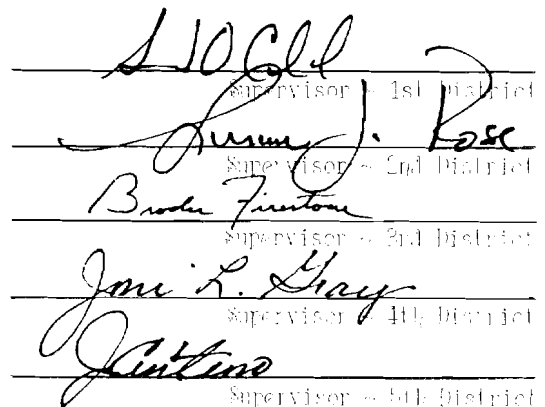 Supervisor - 1st District
Susan J. Rose
Supervisor - 2nd District
Brooks Firestone
Supervisor - 3rd District
Joni L. Gray
Supervisor - 4th District
J Centeno
Supervisor - 5th District